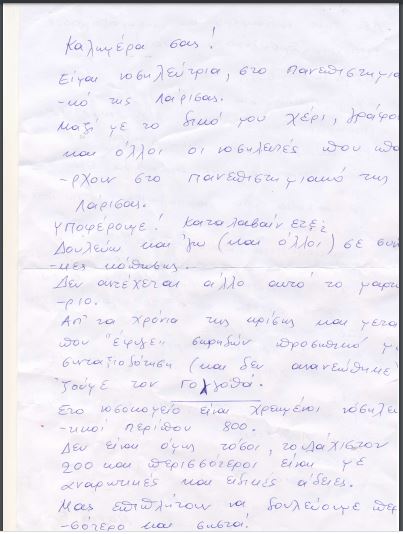 Καλημέρα σας!
Είμαι νοσηλεύτρια, στο πανεπιστημια
-κό της Λάρισας.
Μαζί με το δικό μου χέρι, γράφου
και όλλοι οι νοσηλευτές που υπα
-ρχουν στο πανεπιστημιακό της
Λάρισας.
Υποφέρουμε! Καταλαβαίνετε;
Δουλεύω και εγώ (και όλλοι) σε συν
-κες κόθησης.
Δεν αντέχεται άλλο αυτό το μαρτυ
-ριο.
Απ' τα χρόνια της κρίσης και μετα
που "έφυγε" σωρηδών προσωπικό με
συνταξιοδότηση (και δεν ανανεώθηκε
ζούμε τον Γολγοθά.
Στο νοσοκομείο είναι χρεωμένοι νοσηλευ
-τικοί περίπου 800.
Δεν είναι όμως τόσοι, τουλάχιστον
200 και περισσότεροι είναι με
αναρωτικές και ειδικές άδειες.
Μας επιπλήτουν να δουλεύουμε περ
-σότερο και σωστά.